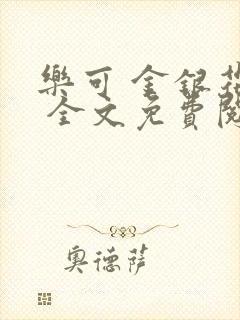 樂可 金銀花
全文免費閱
奧德薩